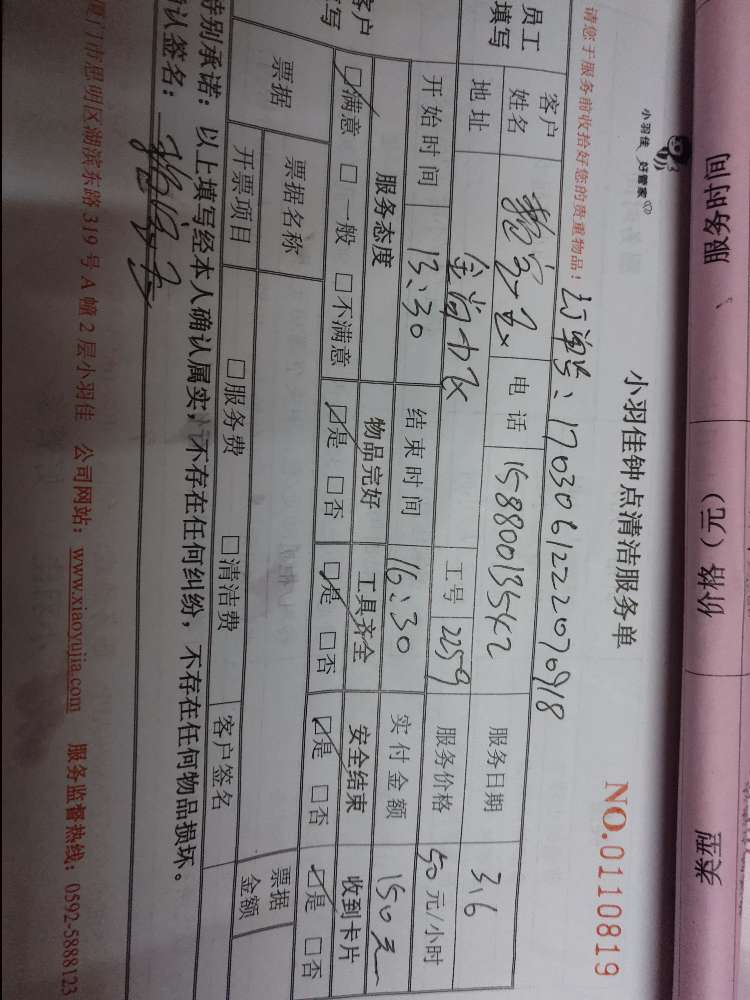 服务时间 价格（元） 类型
小羽佳 好管家
小羽佳钟点清洁服务单
NO.0110819
请您于服务前收拾好您的贵重物品！订单号：1703061222070918
员工填写
客户姓名 电话 15880013542 服务日期 3.6
地址 金尚小区 工号 2259 服务价格 50元/小时
开始时间 13:30 结束时间 16:30 实付金额 150元
服务态度 物品完好 工具齐全 安全结束 收到卡片
满意 一般 不满意 是 否 是 否 是 否 是 否
票据 票据名称 票据金额
开票项目 服务费 清洁费 客户签名
特别承诺：以上填写经本人确认属实，不存在任何纠纷，不存在任何物品损坏。
确认签名：
厦门市思明区湖滨东路319号A幢2层小羽佳 公司网站：www.xiaoyujia.com 服务监督热线：0592-5888123